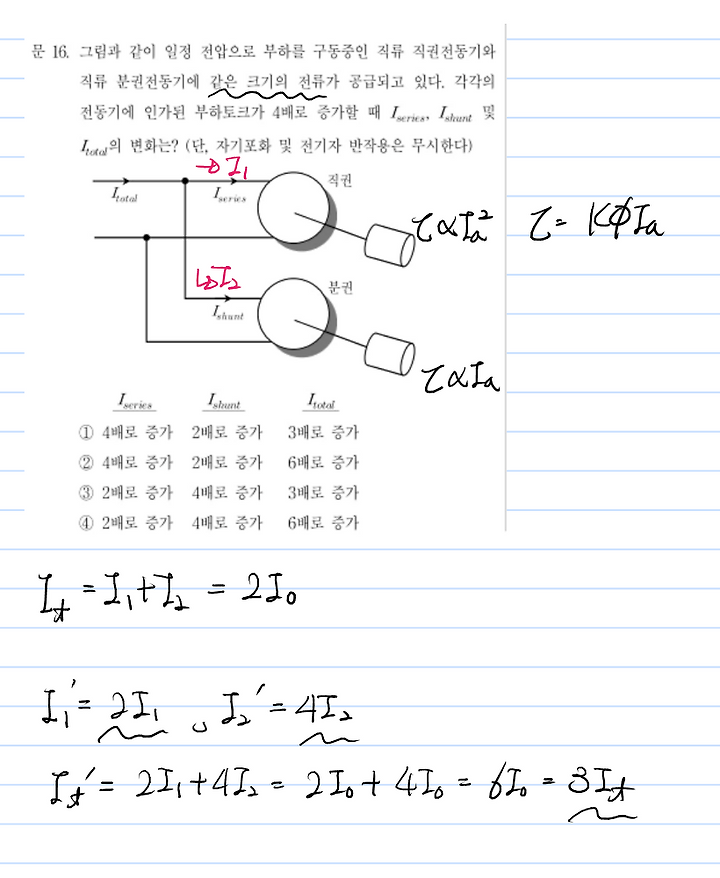 문 16. 그림과 같이 일정 전압으로 부하를 구동중인 직류 직권전동기와
직류 분권전동기에 같은 크기의 전류가 공급되고 있다. 각각의
전동기에 인가된 부하토크가 4배로 증가할 때 I_series, I_shunt 및
I_total의 변화는? (단, 자기포화 및 전기자 반작용은 무시한다)
→ I₁
직권
I_total
I_series
τ∝Iₐ²
τ = KϕIₐ
↳ I₂
분권
I_shunt
τ∝Iₐ
I_series I_shunt I_total
① 4배로 증가 2배로 증가 3배로 증가
② 4배로 증가 2배로 증가 6배로 증가
③ 2배로 증가 4배로 증가 3배로 증가
④ 2배로 증가 4배로 증가 6배로 증가
I_t = I₁+I₂ = 2I₀
I₁′ = 2I₁, I₂′ = 4I₂
I_t′ = 2I₁+4I₂ = 2I₀+4I₀ = 6I₀ = 3I_t